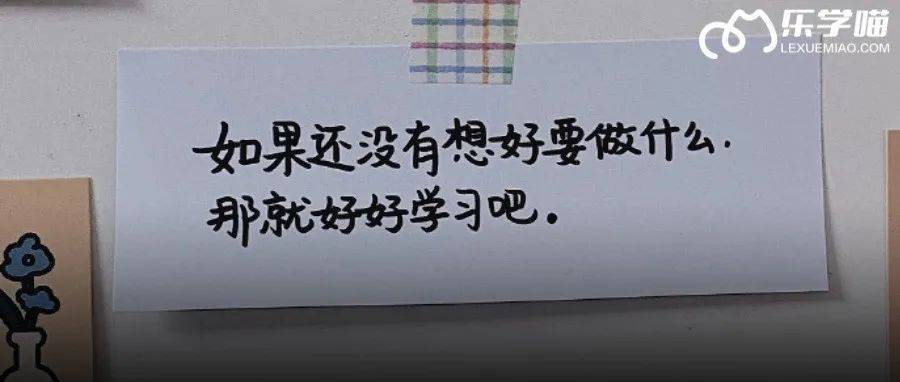 乐学喵
LEXUEMIAO.COM
如果还没有想好要做什么.
那就好好学习吧。